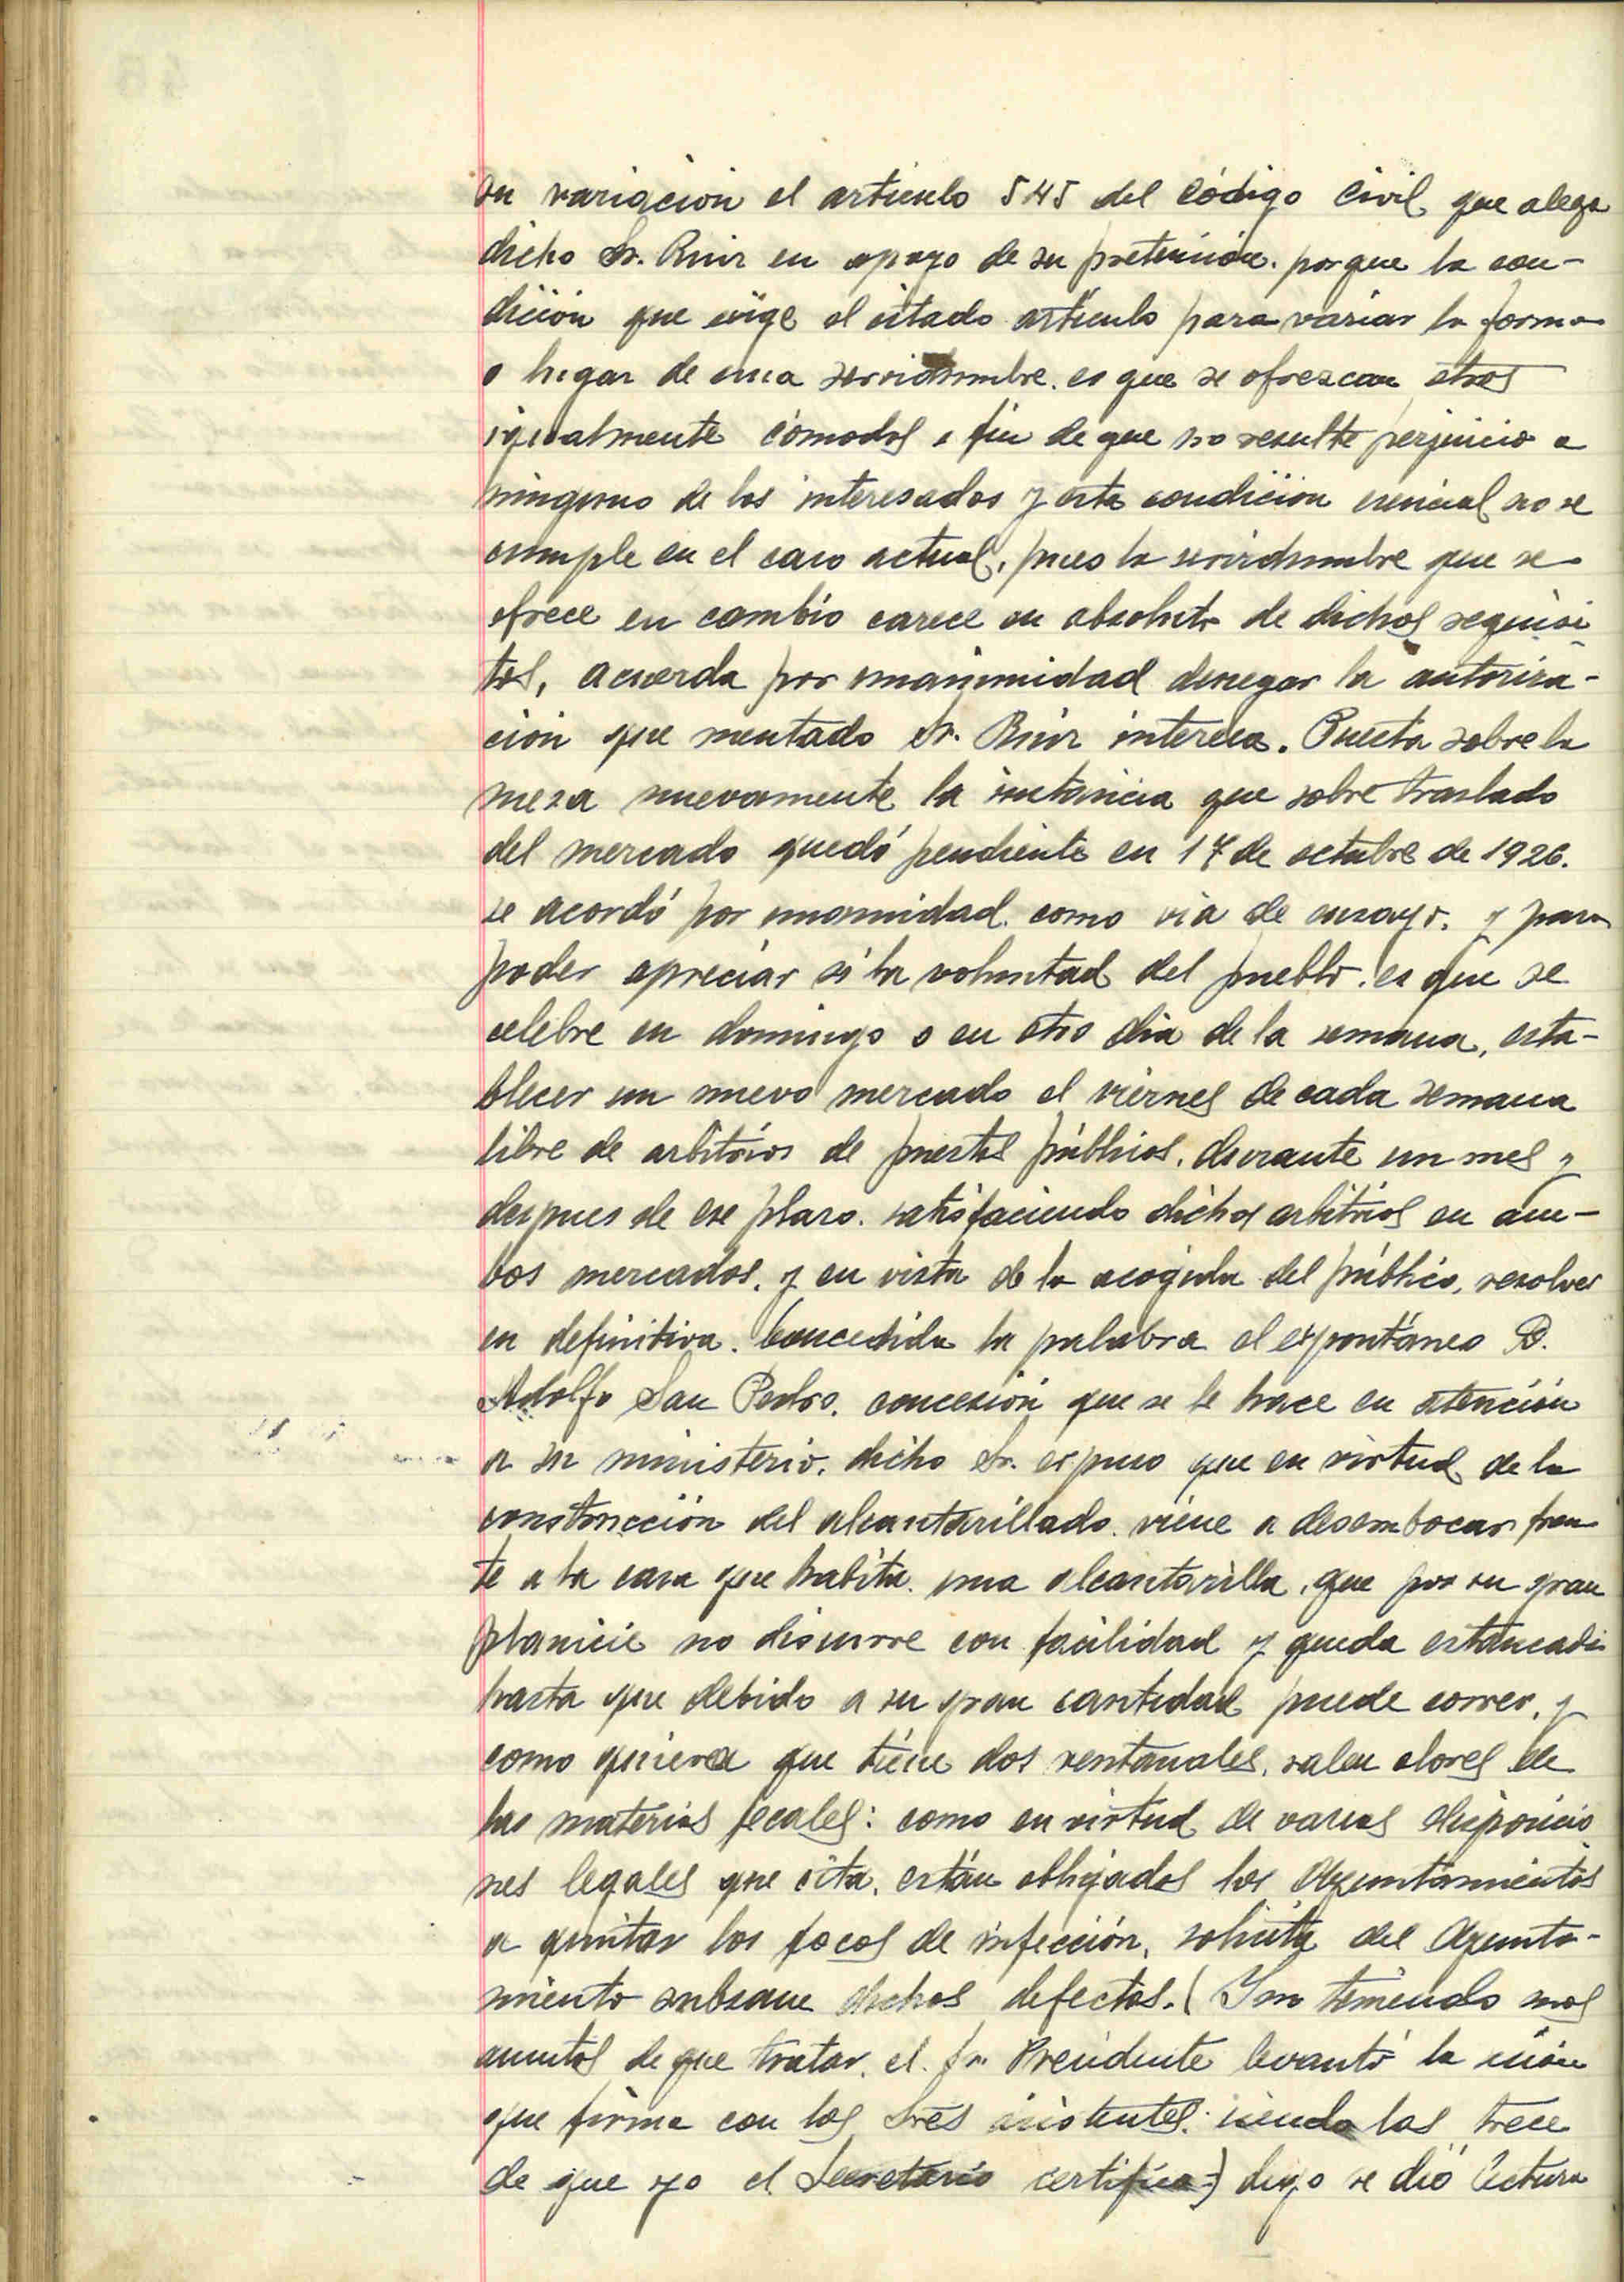 su variación el artículo 545 del Código civil, que alega
dicho Sr. Ruiz en apoyo de su pretensión. porque la con-
dición que exige el citado artículo para variar la forma
o lugar de una servidumbre. es que se ofrezcan otros
igualmente cómodos a fin de que no resulte perjuicio a
ninguno de los interesados y esta condición esencial no se
cumple en el caso actual, pues la servidumbre que se
ofrece en cambio carece en absoluto de dichos requisi-
tos, acuerda por unanimidad denegar la autoriza-
ción que mentado Sr. Ruiz interesa. Puesta sobre la
mesa nuevamente la instancia que sobre traslado
del mercado quedó pendiente en 17 de octubre de 1926.
se acordó por unanimidad. como vía de ensayo. y para
poder apreciar si la voluntad del pueblo. es que se
celebre en domingo o en otro día de la semana, esta-
blecer un nuevo mercado el viernes de cada semana
libre de arbitrios de puestos públicos. durante un mes y
despues de ese plazo. satisfaciendo dichos arbitrios en am-
bos mercados. y en vista de la acogida del público, resolver
en definitiva. Concedida la palabra al expontáneo D.
Adolfo San Pedro. concesión que se le hace en atención
a su ministerio. dicho Sr. expuso que en virtud de la
construcción del alcantarillado. viene a desembocar fren
te a la casa que habita. una alcantarilla, que por su gran
planicie no discurre con facilidad y queda estancada
hasta que debido a su gran cantidad puede correr, y
como quiera que tiene dos ventanales, salen olores de
las materias fecales: como en virtud de varias disposicio
nes legales que cita, están obligados los Ayuntamientos
a quitar los focos de infección, solicita del Ayunta-
miento subsane dichos defectos. (Y no teniendo mas
asuntos de que tratar, el Sr. Presidente levantó la sesión
que firma con los Sres asistentes. siendo las trece
de que yo el Secretario certifico-) digo se dió lectura